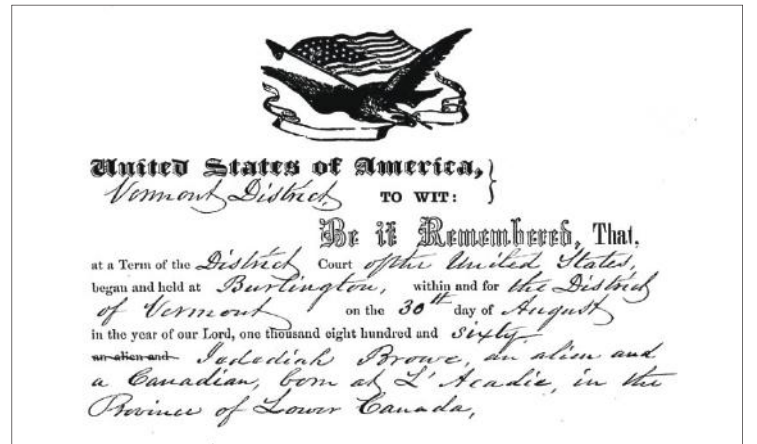 United States of America,
Vermont District, TO WIT:
Be it Remembered, That,
at a Term of the District Court of the United States,
began and held at Burlington, within and for the District
of Vermont on the 30th day of August
in the year of our Lord, one thousand eight hundred and sixty
an alien and Jedediah Browe, an alien and
a Canadian, born at L'Acadie, in the
Province of Lower Canada,